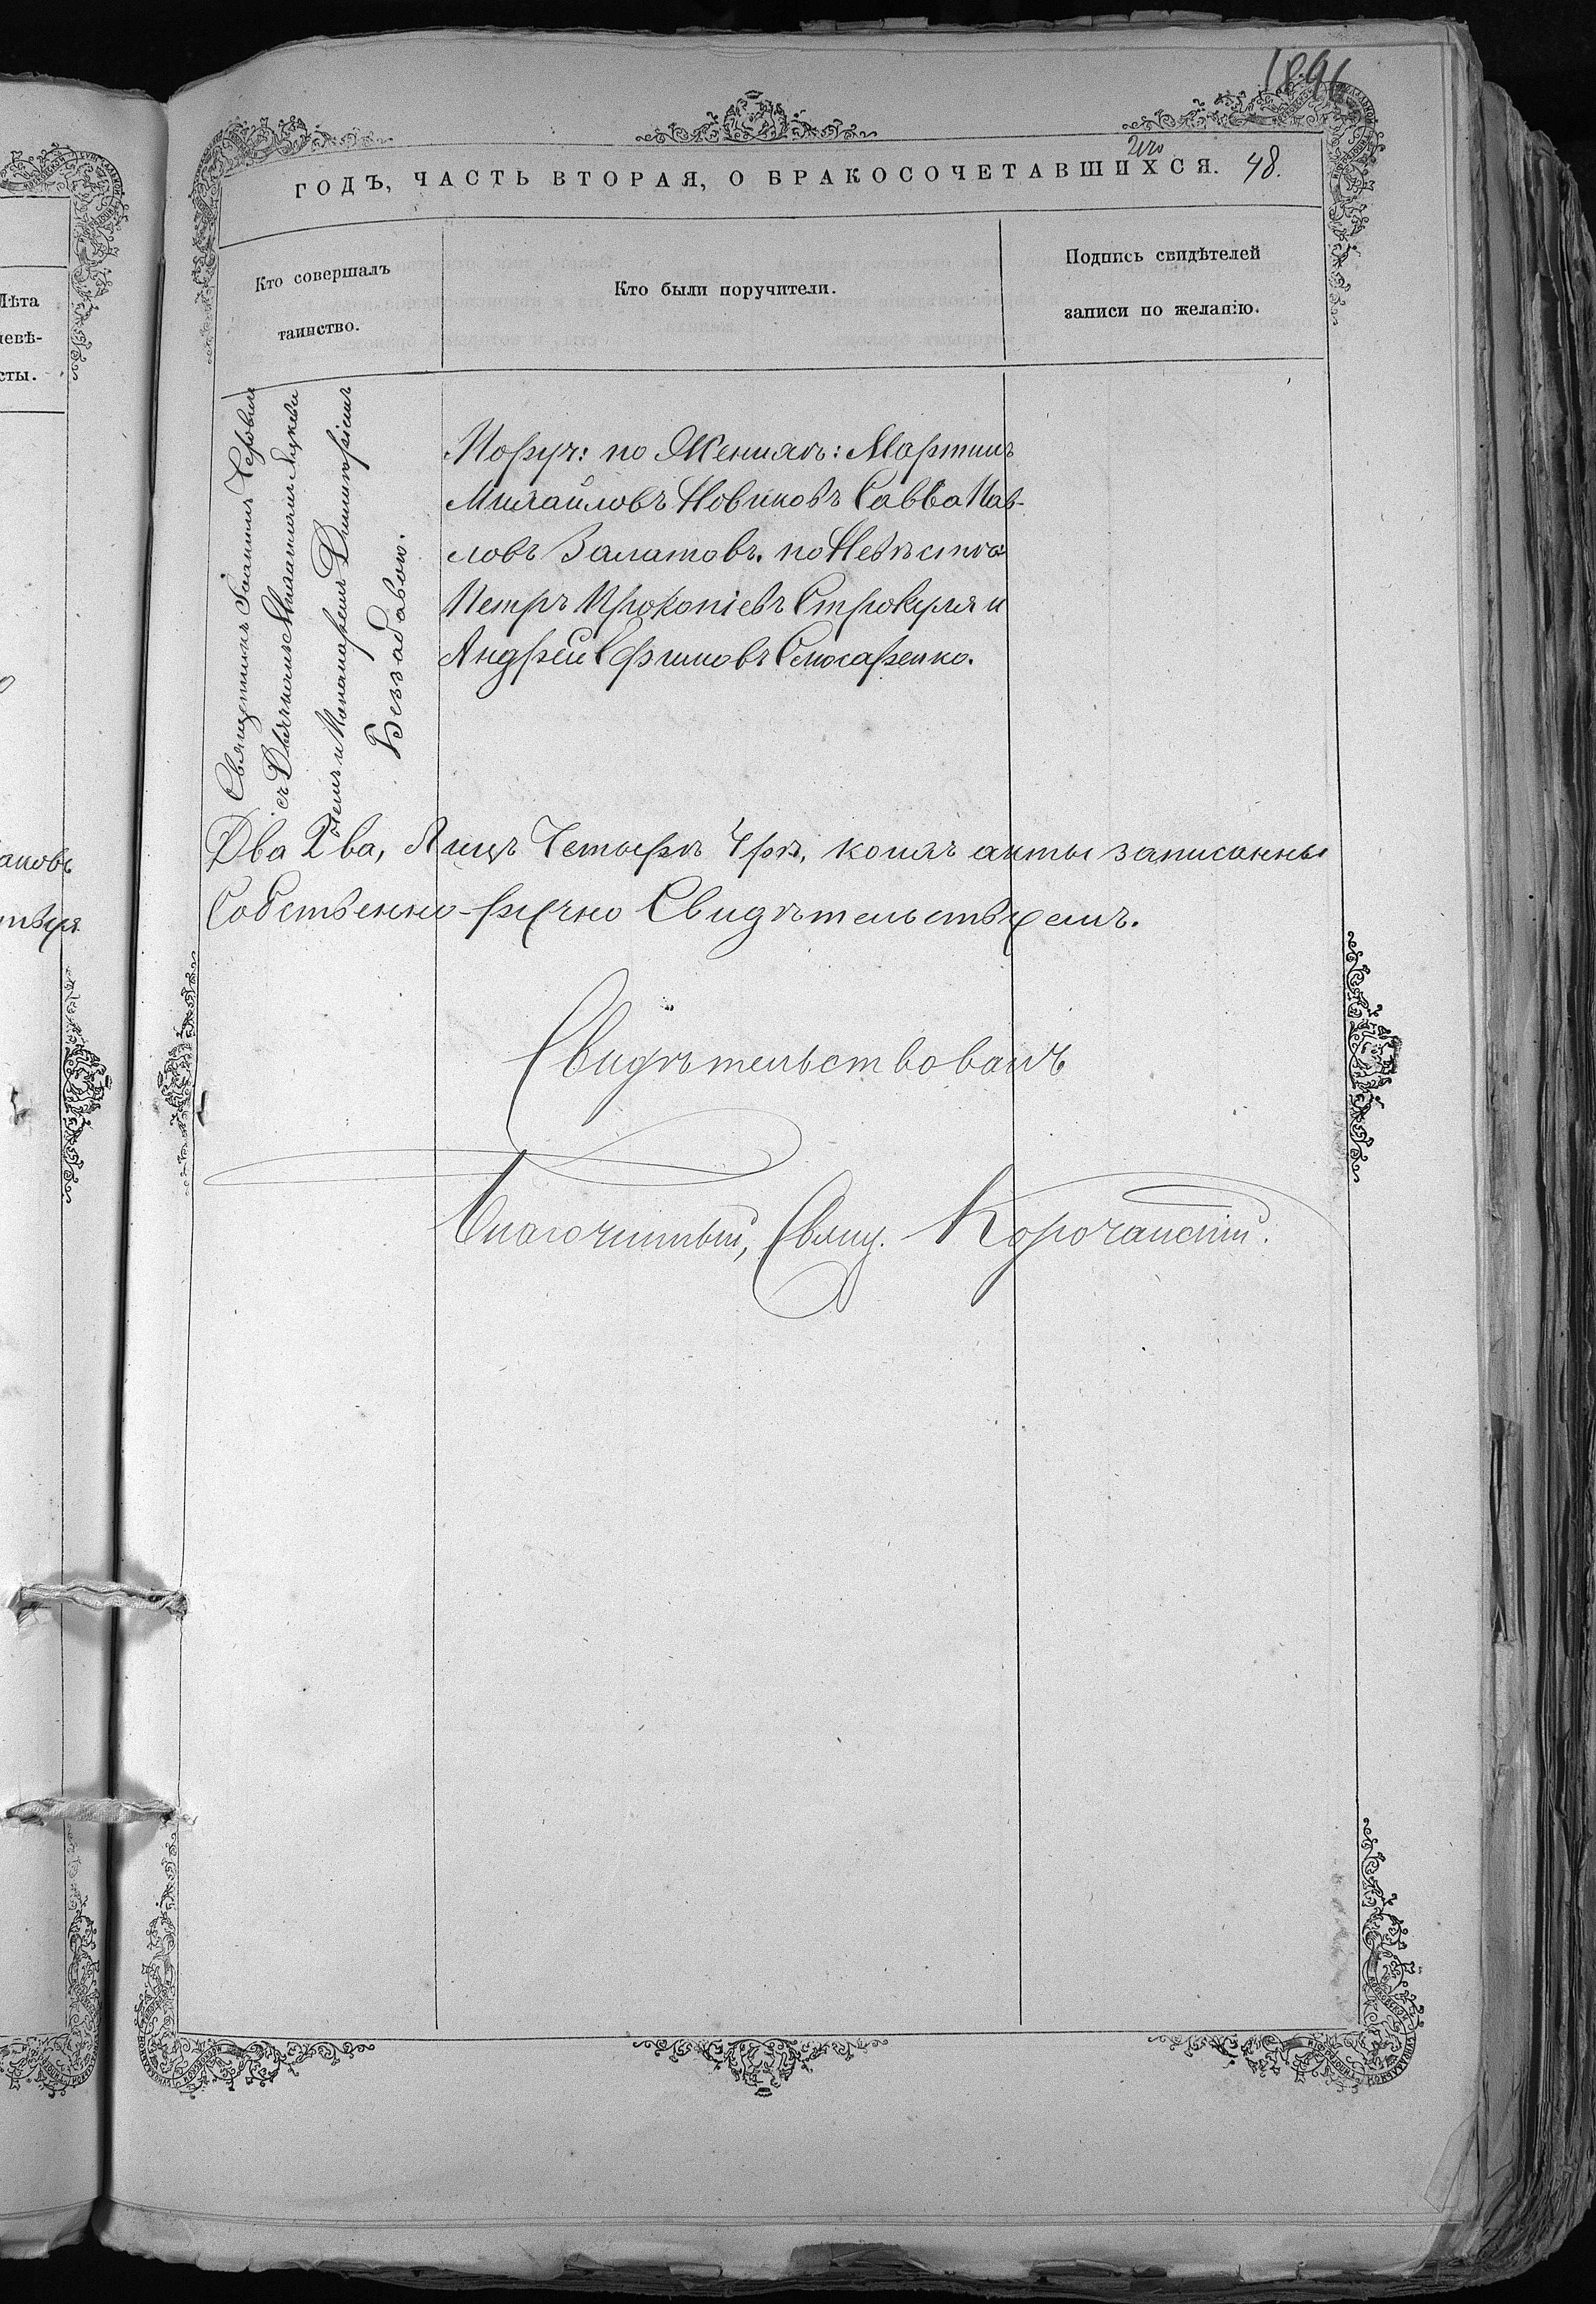 189
2го
ГОДЪ, ЧАСТЬ ВТОРАЯ, О БРАКОСОЧЕТАВШИХСЯ. 48.
Лѣта
невѣ-
сты.
Кто совершалъ
таинство.
Кто были поручители.
Подпись свидѣтелей
записи по желанію.
Священникъ Іоаннъ
съ Дьячкомъ
и Пономаремъ Димитріемъ
Беззабавою.
Поруч: по Женихѣ: Мартинъ
Михайловъ Новиковъ Савва Пав-
ловъ Залатовъ. по Невѣстѣ
Петръ Прокопіевъ Строкуля и
Андрей Ефимовъ Слюсаренко.
Два 2ва, Лицъ Четыре 4ре, коихъ акты записанны
Собственно-ручно Свидѣтельствуемъ.
Свидѣтельствовалъ
Благочинный, Свящ. Корочанскій.